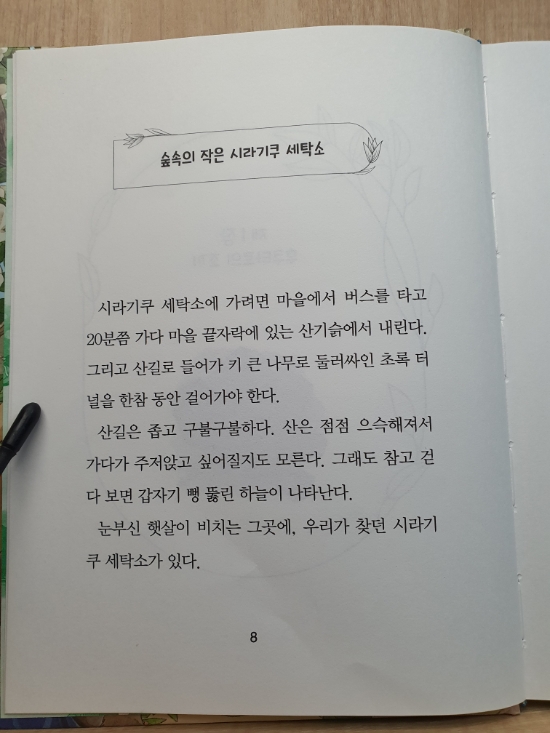 숲속의 작은 시라기쿠 세탁소
시라기쿠 세탁소에 가려면 마을에서 버스를 타고
20분쯤 가다 마을 끝자락에 있는 산기슭에서 내린다.
그리고 산길로 들어가 키 큰 나무로 둘러싸인 초록 터
널을 한참 동안 걸어가야 한다.
산길은 좁고 구불구불하다. 산은 점점 으슥해져서
가다가 주저앉고 싶어질지도 모른다. 그래도 참고 걷
다 보면 갑자기 뻥 뚫린 하늘이 나타난다.
눈부신 햇살이 비치는 그곳에, 우리가 찾던 시라기
쿠 세탁소가 있다.
8